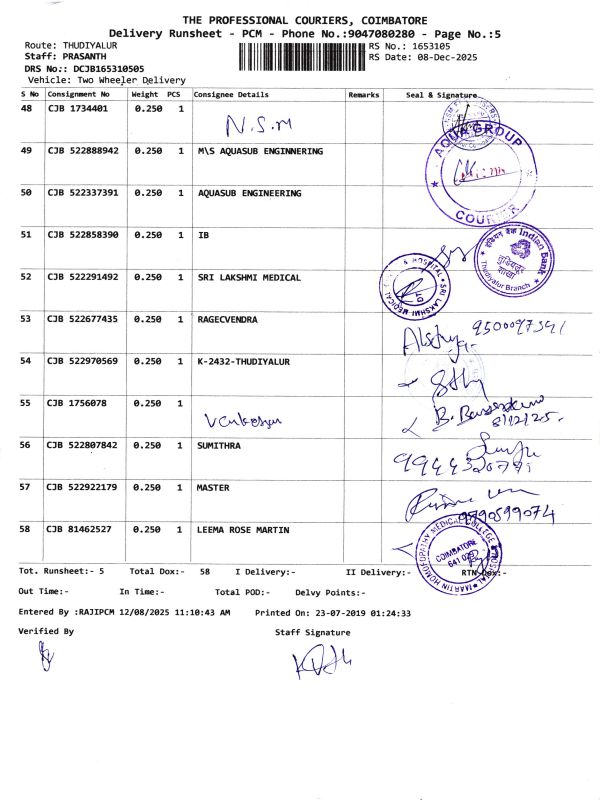 THE PROFESSIONAL COURIERS, COIMBATORE
Delivery Runsheet - PCM - Phone No.:9047080280 - Page No.:5
Route: THUDIYALUR
RS No.: 1653105
Staff: PRASANTH
RS Date: 08-Dec-2025
DRS No.: DCJB165310505
Vehicle: Two Wheeler Delivery
S No Consignment No Weight PCS Consignee Details Remarks Seal & Signature
48 CJB 1734401 0.250 1 N.S.M
49 CJB 522888942 0.250 1 M\S AQUASUB ENGINNERING
AQUA GROUP
COURIER
50 CJB 522337391 0.250 1 AQUASUB ENGINEERING
51 CJB 522858390 0.250 1 IB
इंडियन बैंक Indian Bank
Thudiyalur Branch
52 CJB 522291492 0.250 1 SRI LAKSHMI MEDICAL
SRI LAKSHMI MEDICAL & HOSPITAL
53 CJB 522677435 0.250 1 RAGECVENDRA
54 CJB 522970569 0.250 1 K-2432-THUDIYALUR
55 CJB 1756078 0.250 1
8/12/25.
56 CJB 522807842 0.250 1 SUMITHRA
57 CJB 522922179 0.250 1 MASTER
9790599074
58 CJB 81462527 0.250 1 LEEMA ROSE MARTIN
MARTIN HOMOEOPATHY MEDICAL COLLEGE HOSPITAL
COIMBATORE
641 029
Tot. Runsheet:- 5 Total Dox:- 58 I Delivery:- II Delivery:- RTN Dox:-
Out Time:- In Time:- Total POD:- Delvy Points:-
Entered By :RAJIPCM 12/08/2025 11:10:43 AM Printed On: 23-07-2019 01:24:33
Verified By Staff Signature